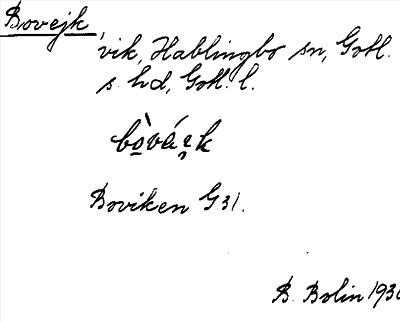 Bovejk,
vik, Hablingbo sn, Gotl.
s. hd, Gotl. l.
Boviken G31.
B. Bolin 193